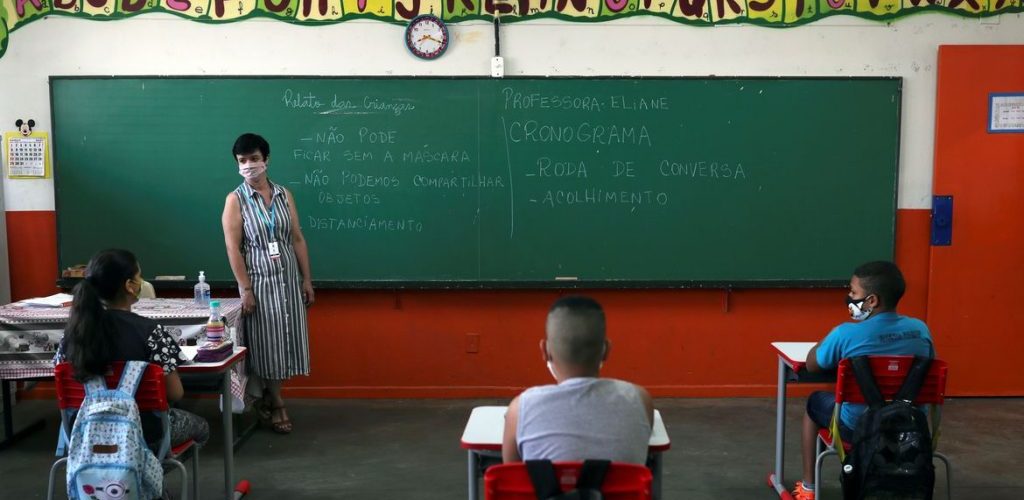 A B C D E F G H I J K L M N O P Q R S T U V W X
Relato das Crianças
- NÃO PODE
FICAR SEM A MÁSCARA
- NÃO PODEMOS COMPARTILHAR
OBJETOS
DISTANCIAMENTO
PROFESSORA - ELIANE
CRONOGRAMA
- RODA DE CONVERSA
- ACOLHIMENTO